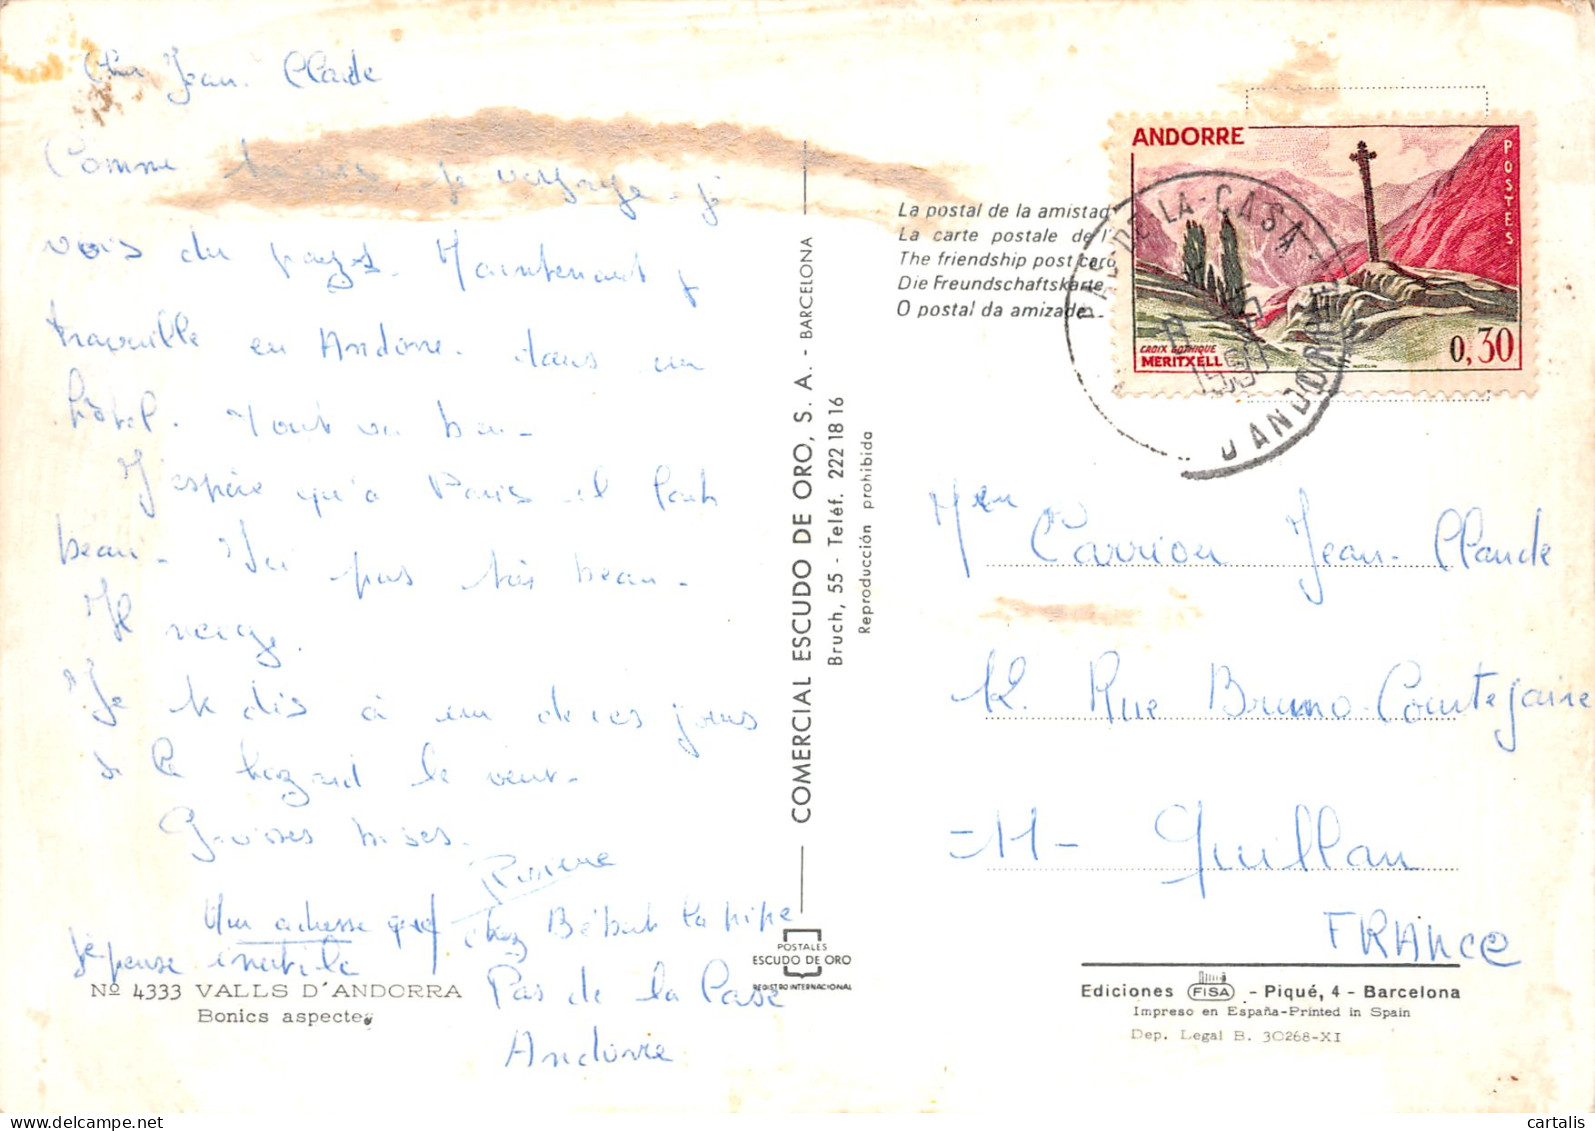 Cher Jean-Claude
Comme tu vois je voyage - je
vois du pays. Maintenant je
tranquille en Andorre. dans un
hôtel. Tout va bien -
J'espère qu'à Paris il fait
beau - Ici pas très beau -
Il neige.
Je te dis à un de ces jours
si le hazard le veut -
Grosses bises.
Mon adresse
je pense inutile
chez Bébert la pipe
Pas de la Case
Andorre
Nº 4333 VALLS D'ANDORRA
Bonics aspectes
COMERCIAL ESCUDO DE ORO, S. A. - BARCELONA
Bruch, 55 - Teléf. 222 18 16
Reproducción prohibida
POSTALES
ESCUDO DE ORO
REGISTRO INTERNACIONAL
La postal de la amistad
La carte postale de l'
The friendship post card
Die Freundschaftskarte
O postal da amizade
ANDORRE
POSTES
CROIX GOTHIQUE
MERITXELL
0,30
PAS-DE-LA-CASA
D'ANDORRE
Carrion Jean-Claude
12. Rue Bruno-Comtejaire
-11- Quillan
FRANCE
Ediciones FISA - Piqué, 4 - Barcelona
Impreso en España-Printed in Spain
Dep. Legal B. 30268-XI
cartalis